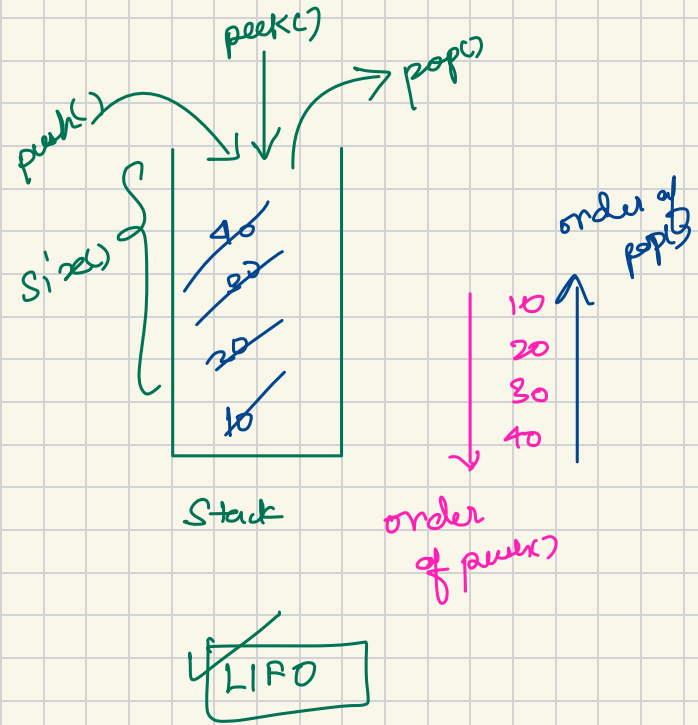 peek()
pop()
push()
size()
40
30
20
10
Stack
order of
pop()
10
20
30
40
order
of push()
LIFO